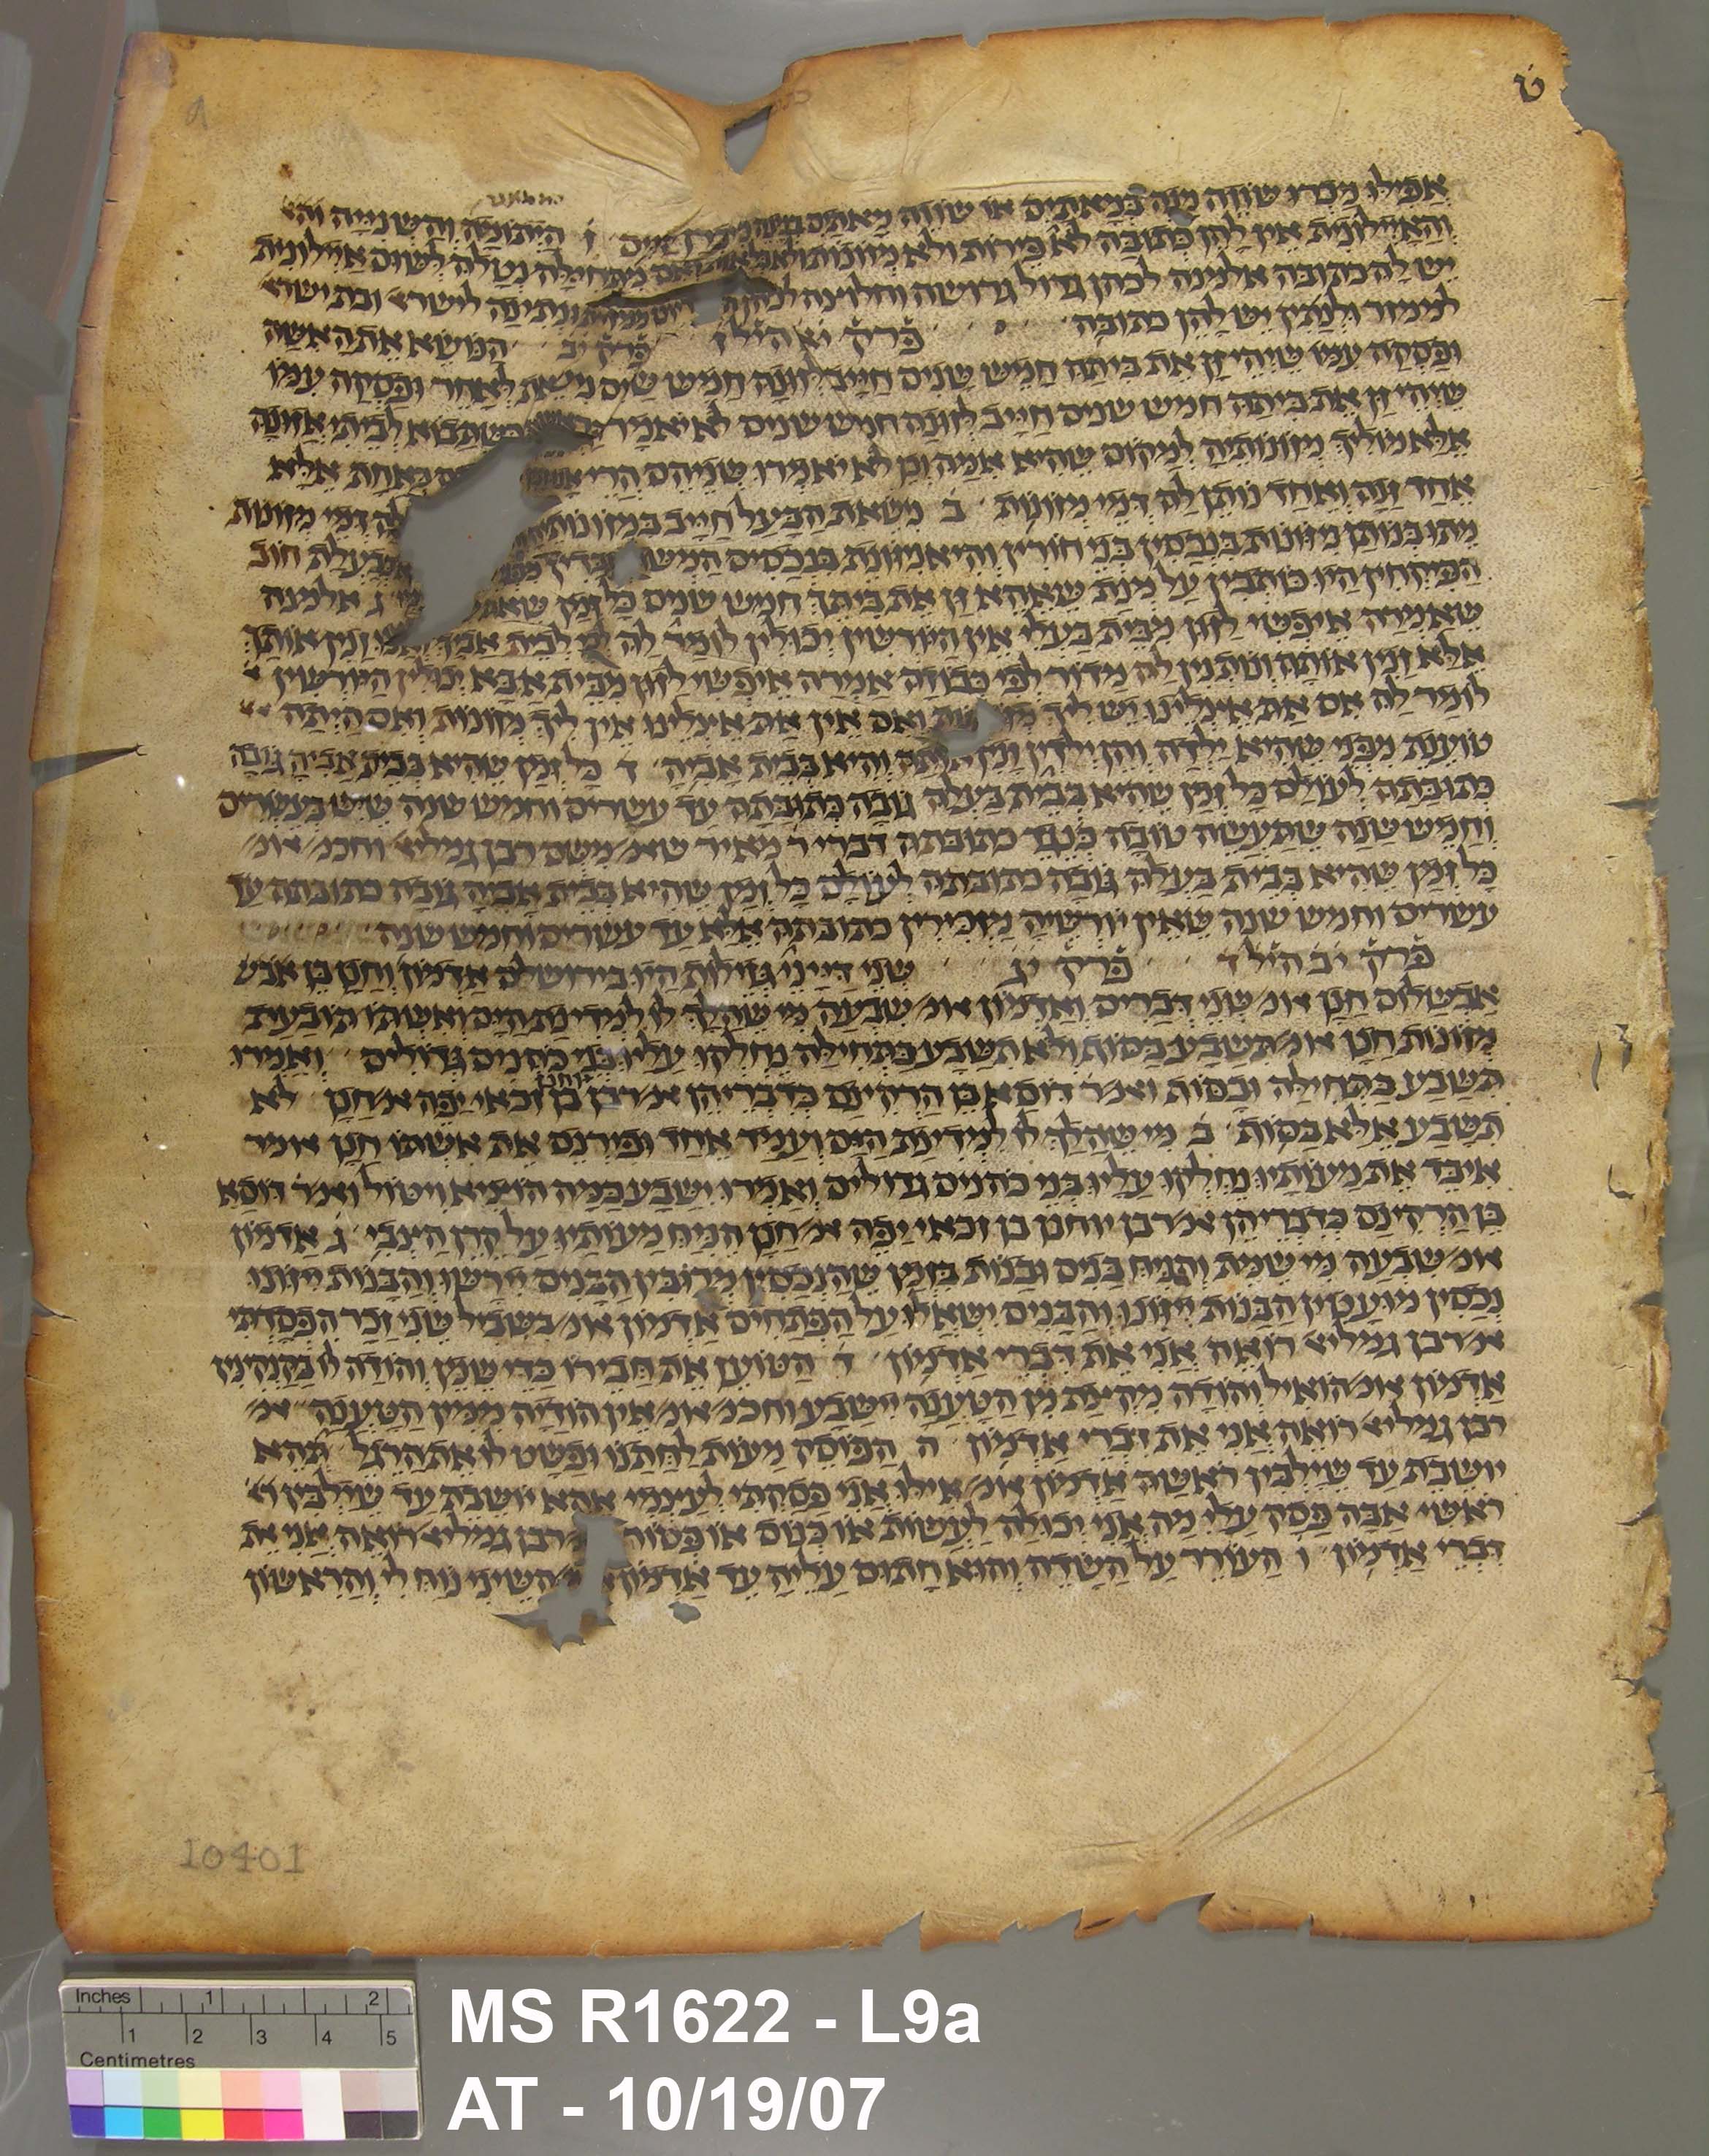 ט
אפילו מכרו שווה מנה במאתים או שווה מאתים במנה מכרן קיים ו היתומה והשנייה
והאיילונית אין להן כתובה לא פירות ולא מזונות ולא בלאות ואם מתחילה נטלה לשום איילונית
יש לה כתובה אלמנה לכהן גדול גרושה וחלוצה לכהן ונתינה לישר ובת ישר
לממזר ולנתין יש להן כתובה פרק יא הל ז פרק יב הנושא את האשה
ופסקה עמו שיהיזן את ביתה חמש שנים חייב לזונה חמש שנים נישאת לאחר ופסקה עמו
שיהיזן את ביתה חמש שנים חייב לזונה חמש שנים לא יאמר כשתבוא לביתי אזונה
אלא מוליך מזונותיה למקום שהיא אמה וכן לא יאמרו שניהם הרי כאחת אלא
אחד זנה ואחד נותן לה דמי מזונות ב נישאת הבעל חייב במזונותיה לה דמי מזונות
מתו בנותן מיזונות בנכסין בני חורין והיא מיזונת בנכסים המשועבדין כבעלת חוב
הפיקחין היו כותבין על מנת שאהא זן את ביתך חמש שנים כל זמן ג אלמנה
שאמרה איפשי לזוז מבית בעלי אין היורשין יכולין לומר לה לכי לבית אביך ואנו זנין אותך
אלא זנין אותה ונותנין לה מדור לפי כבודה אמרה איפשי לזוז מבית אבא יכולין היורשין
לומר לה אם את אצלינו יש ליך מזונות ואם אין את אצלינו אין ליך מזונות ואם היתה
טוענת מפני שהיא ילדה והן ילדין זנין אותה והיא בבית אביה ד כל זמן שהיא בבית אביה גובה
כתובתה לעולם כל זמן שהיא בבית בעלה גובה כתובתה עד עשרים וחמש שנה שיש בעשרים
וחמש שנה שתעשה טובה כנגד כתובתה דברי ר מאיר שא׳ משם רבן גמליא וחכמ׳ או׳
כל זמן שהיא בבית בעלה גובה כתובתה לעולם כל זמן שהיא בבית אביה גובה כתובתה עד
עשרים וחמש שנה שאין יורשיה מזכירין כתובתה אלא עד עשרים וחמש שנה
פרק יב הל ד פרק יג שני דייני גזילות היו בירושלם אדמון וחנן בן אבש
אבשלום חנן או׳ שני דברים ואדמון או׳ שבעה מי שהלך לו למדינת הים ואשתו תובעת
מזונות חנן או׳ תשבע בסוף ולא תשבע בתחילה נחלקו עליו בני כהנים גדולים ואמרו
תשבע בתחילה ובסוף ואמר דוסא בן הרקינס כדבריהן א׳ רבן יוחנן בן זכאי יפה א׳ חנן לא
תשבע אלא בסוף ב מי שהלך לו למדינת הים ועמד אחד ופירנס את אשתו חנן אומר
איבד את מעותיו נחלקו עליו בני כהנים גדולים ואמרו ישבע כמה הוציא ויטול ואמר דוסא
בן הרקינס כדבריהן א׳ רבן יוחנן בן זכאי יפה א׳ חנן הניח מעותיו על קרן הצבי ג אדמון
או׳ שבעה מי שמת והניח בנים ובנות בזמן שהנכסין מרובין הבנים יירשו והבנות ייזונו
נכסין מועטין הבנות ייזונו והבנים ישאלו על הפתחים אדמון או׳ בשביל שני זכר הפסדתי
א׳ רבן גמליא רואה אני את דברי אדמון ד הטוען את חבירו כדי שמן והודה לו בקנקנין
אדמון או׳ הואיל והודה מקצת מן הטענה יישבע וחכמ׳ או׳ אין הודיה ממין הטענה א׳
רבן גמליא רואה אני את דברי אדמון ה הפוסק מעות לחתנו ופשט לו את הרגל תהא
יושבת עד שילבין ראשה אדמון או׳ אילו אני פסקתי לעצמי אהא יושבת עד שילבין
ראשי אבה פסק עלי מה אני יכולה לעשות או כנוס או פטור א׳ רבן גמליא רואה אני את
דברי אדמון ו העורר על השדה והוא חתום עליה עד אדמון או׳ השיני נוח לי והראשון
10401
MS R1622 - L9a
AT - 10/19/07
Inches 1 2
1 2 3 4 5
Centimetres